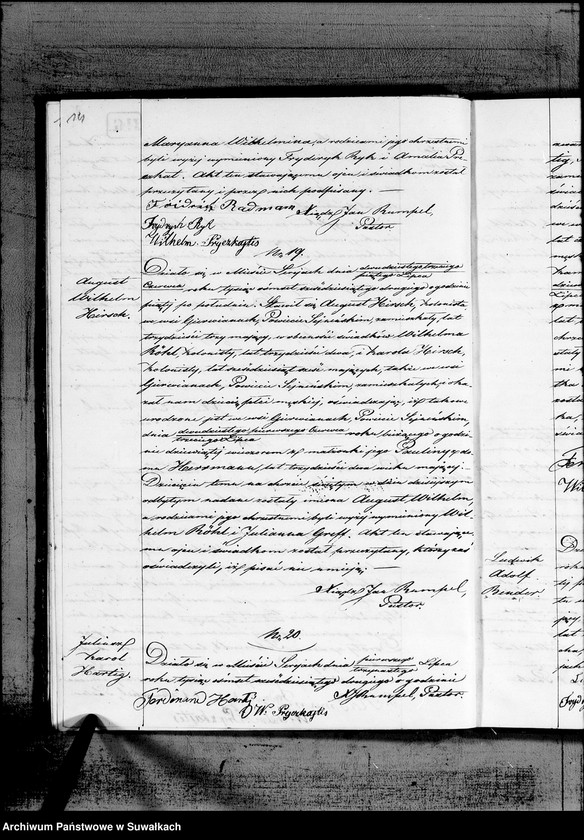 14
Maryanna Wilhelmina, a rodzicami jego chrzestnemi
byli wyżej wymieniony Frydryk Ryk i Amalia
Akt ten stawającemu ojcu i świadkom został
przeczytany i przez nich podpisany. —
Fridrich Radman Xiądz Jan Rumpel,
Pastor
Frydryk Ryl
Wilhelm Pryezkajtis
No 19.
August
Wilhelm
Hirsch.
Działo się w Mieście Serejach dnia dwudziestego trzeciego
Czerwca piątego Lipca roku tysiąc ośmset sześćdziesiąt drugiego o godzinie
piątej po południu. Stawił się August Hirsch, kolonista
w wsi Giwowianach, Powiecie Sejneńskim, zamieszkały, lat
trzydzieści trzy mający, w obecności świadków Wilhelma
Röhl, kolonisty, lat trzydzieści dwa, i Karola Hirsch,
kolonisty, lat sześćdziesiąt mających, także w wsi
Giwowianach, Powiecie Sejneńskim, zamieszkałych, i oka-
zał nam dziecię płci męskiej, oświadczając, iż takowe
urodzone jest w wsi Giwowianach, Powiecie Sejneńskim,
dnia dwudziestego pierwszego Czerwca roku bieżącego o godzi-
trzeciego Lipca
nie dziewiątej wieczorem z małżonki jego Pauliny z do-
mu Herrmann, lat trzydzieści dwa mającej.
Dziecięciu temu na chrzcie świętym w dniu dzisiejszym
odbytym nadane zostały imiona August Wilhelm,
a rodzicami jego chrzestnemi byli wyżej wymieniony Wil-
helm Röhl i Julianna Greff. Akt ten stawające-
mu ojcu i świadkom został przeczytany, którzy zaś
oświadczyli, iż pisać nie umieją. —
Xiądz Jan Rumpel,
Pastor.
No 20.
Juliusz
Karol
Hartig.
Działo się w Mieście Serejach dnia pierwszego Lipca
trzynastego
roku tysiąc ośmset sześćdziesiąt drugiego o godzinie
Ferdinand Hartig X J Rumpel, Pastor.
W. Pryezkajtis
Ludwik
Adolf
Bender